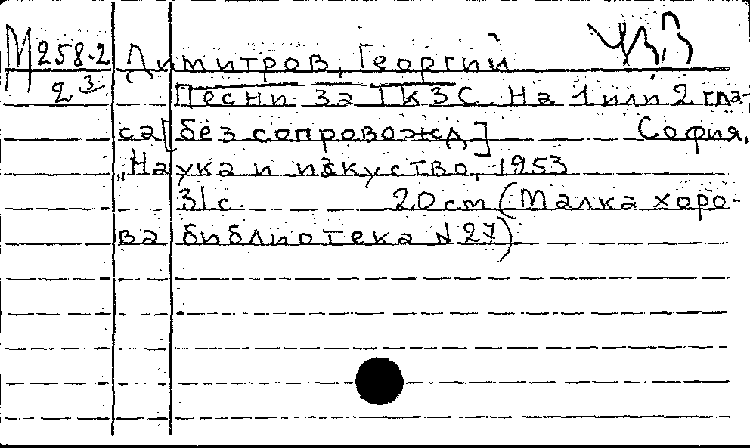 М 258.2
2 3
ЧЗ
Димитров, Георгий
Песни за ТКЗС. На 1 или 2 гла-
са [без сопровожд.] София,
"Наука и изкуство, 1953
31 с. 20 cm (Малка хоро-
ва библиотека N 27)